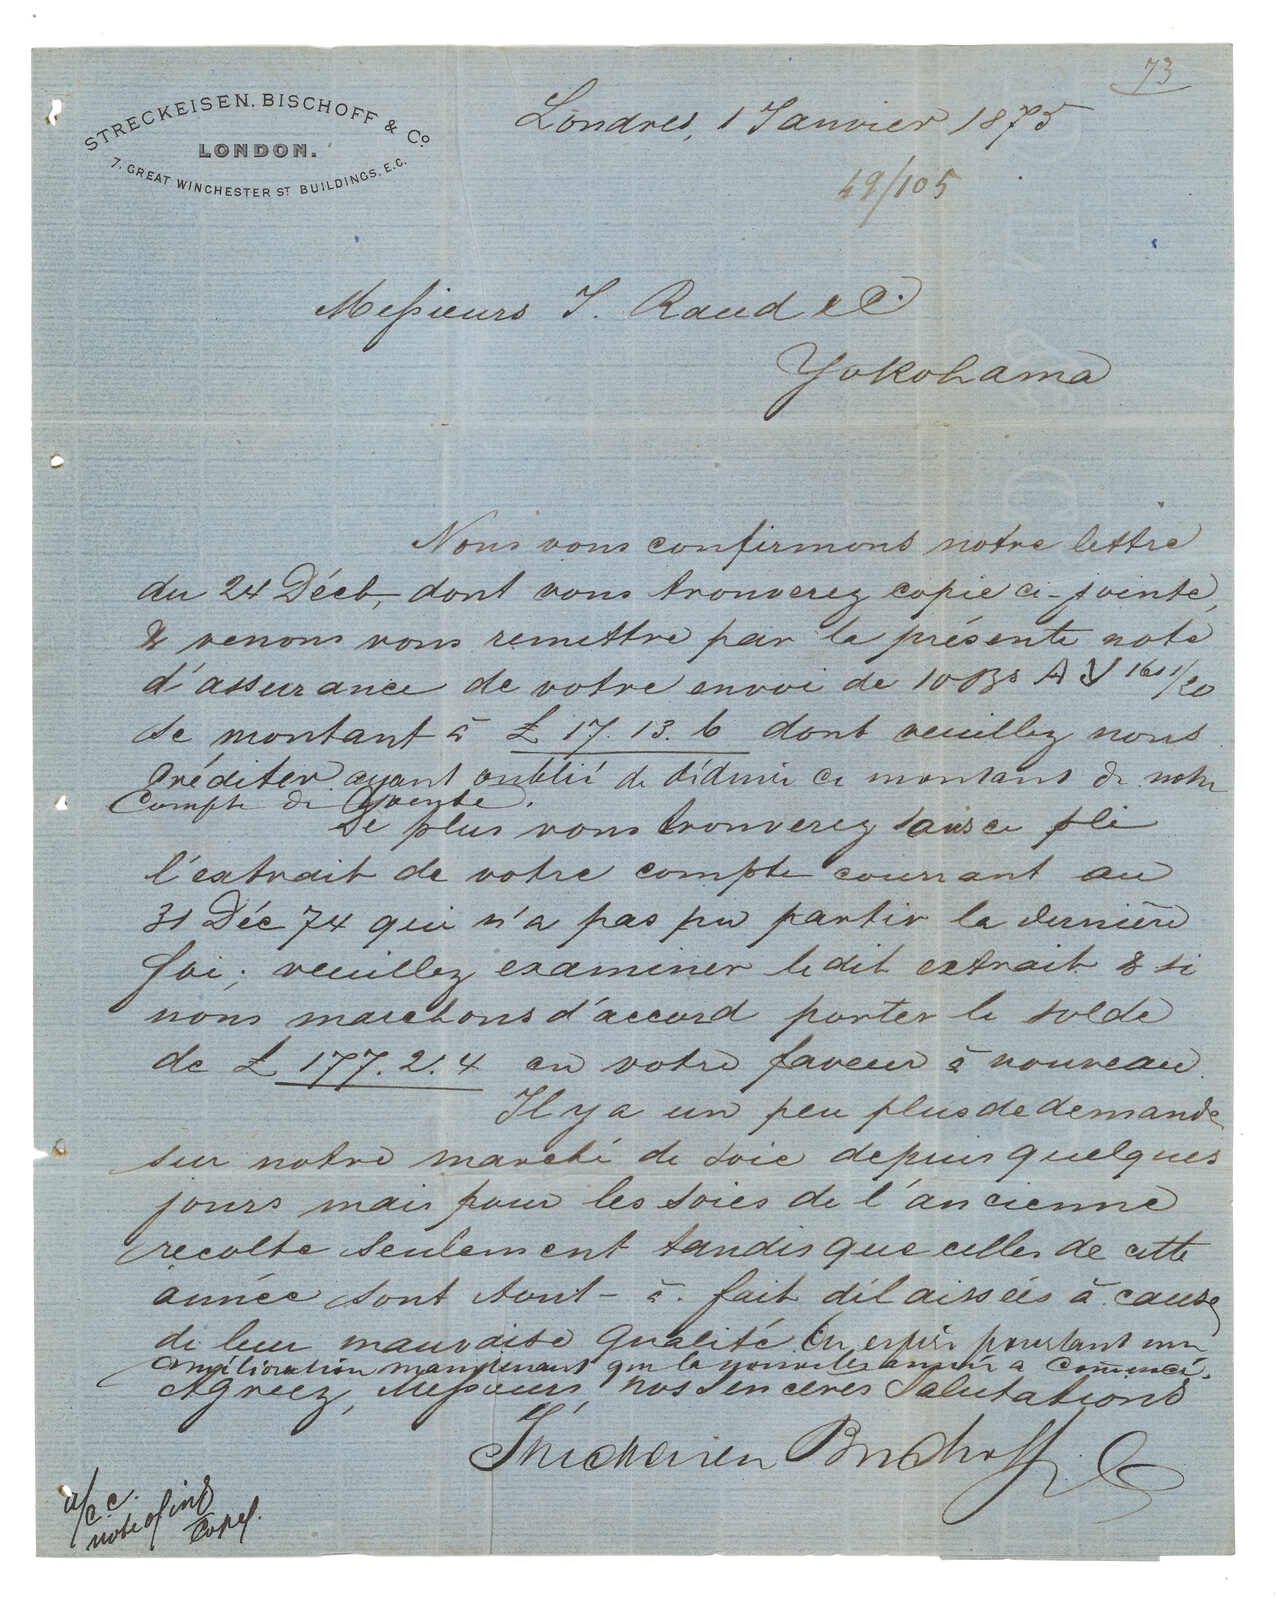 73
STRECKEISEN, BISCHOFF & Co
LONDON.
7, GREAT WINCHESTER ST BUILDINGS, E.C.
Londres, 1 Janvier 1875
49/105
Messieurs J. Raud & C.
Yokohama
Nous vous confirmons notre lettre
du 24 Déct, dont vous trouverez copie ci-jointe,
& venons vous remettre par la présente note
d'assurance de votre envoi de 10 Bs A V 1611/20
se montant à £ 17. 13. 6 dont veuillez nous
créditer ayant oublié de déduire ce montant de notre
Compte de vente.
De plus vous trouverez sous ce pli
l'extrait de votre compte courrant au
31 Déc 74 qui n'a pas pu partir la dernière
foi; veuillez examiner le dit extrait & si
nous marchons d'accord porter le solde
de £ 177. 2. 4 en votre faveur à nouveau.
Il y a un peu plus de demande
sur notre marché de soie depuis quelques
jours mais pour les soies de l'ancienne
recolte seulement tandis que celles de cette
année sont tout-à-fait délaissées à cause
de leur mauvaise qualité. On espère pourtant une
amélioration maintenant que la nouvelle année a commencé.
Agréez, Messieurs, nos sincères Salutations
Streckeisen Bischoff & Co
a/c. c.
note of ins
Copy.